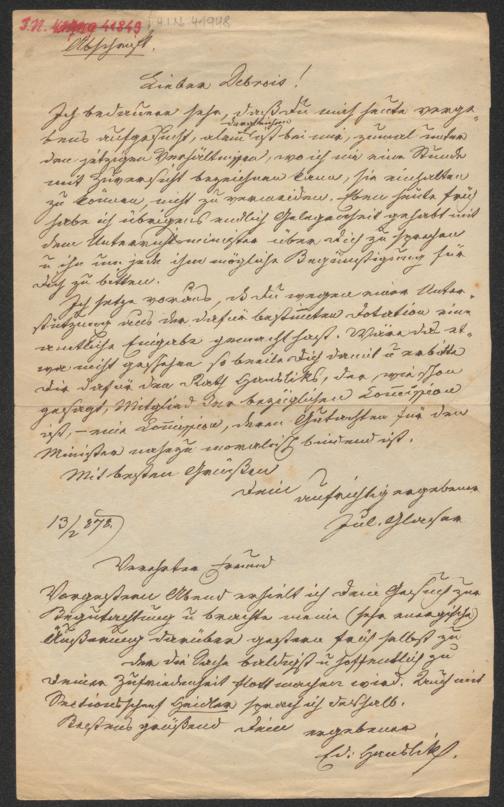 I.N. 41849
H.I.N. 41948
Abschrift.
Lieber Debrois!
Ich bedauere sehr, daß Du mich heute verge-
bens aufgesucht, allein ist bei mir, zumal unter
dergleichen
den jetzigen Verhältnissen, wo ich nie eine Stunde
mit Zuversicht bezeichnen kann, sie einhalten
zu können, nicht zu vermeiden. Eben heute früh
habe ich übrigens endlich Gelegenheit gehabt mit
dem Unterrichtsminister über Dich zu sprechen
u ihn um jede ihm mögliche Begünstigung für
Dich zu bitten.
Ich setze voraus, daß Du wegen einer Unter-
stützung aus der dafür bestimmten Dotation eine
amtliche Eingabe gemacht hast. Wäre das et-
wa nicht geschehen so beeile Dich damit u erbitte
Dir dafür den Rath Hansliks, der, wie schon
gesagt, Mitglied der bezüglichen Commission
ist, – eine Commission, deren Gutachten für den
Minister nahezu moralisch bindend ist.
Mit besten Grüßen
Dein aufrichtig ergebener
Jul. Glaser
13/2 872
Verehrter Freund
Vorgestern Abend erhielt ich Dein Gesuch zur
Begutachtung u brachte meine (sehr energische)
Äußerung darüber gestern früh selbst zu
der die Sache baldigst u hoffentlich zu
Deiner Zufriedenheit flott machen wird. Auch mit
Sectionschef Heidler sprach ich deshalb.
Bestens grüßend Dein ergebener
Ed. Hanslik.